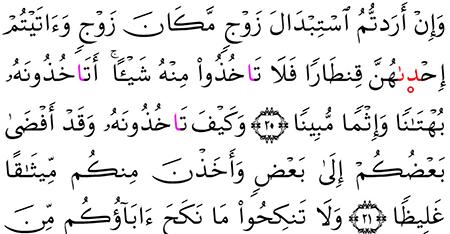 وَإِنْ أَرَدتُّمُ ٱسْتِبْدَالَ زَوْجٍ مَّكَانَ زَوْجٍ وَءَاتَيْتُمْ
إِحْدىٰهُنَّ قِنطَارًا فَلَا تَاخُذُوا۟ مِنْهُ شَيْـًٔا ۚ أَتَاخُذُونَهُۥ
بُهْتَٰنًا وَإِثْمًا مُّبِينًا ٢٠ وَكَيْفَ تَاخُذُونَهُۥ وَقَدْ أَفْضَىٰ
بَعْضُكُمْ إِلَىٰ بَعْضٍ وَأَخَذْنَ مِنكُم مِّيثَٰقًا
غَلِيظًا ٢١ وَلَا تَنكِحُوا۟ مَا نَكَحَ ءَابَآؤُكُم مِّنَ